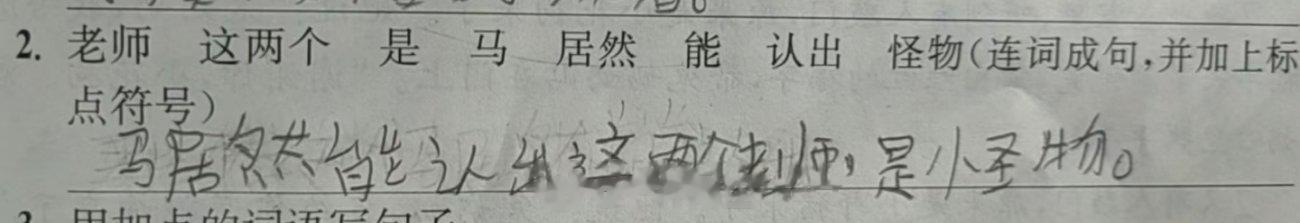 2. 老师 这两个 是 马 居然 能 认出 怪物(连词成句,并加上标
点符号)
马居然能认出这两个老师,是怪物。